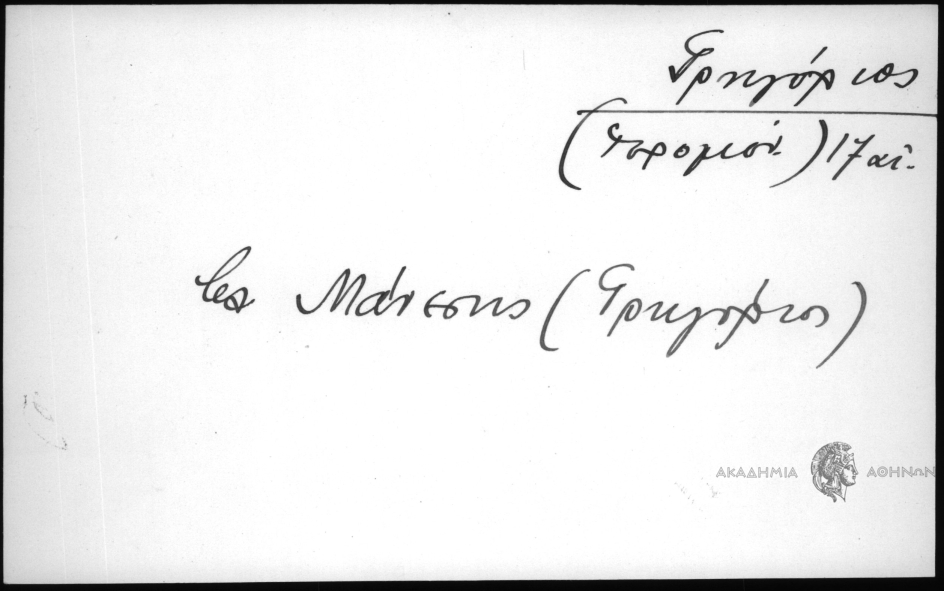 Γρηγόριος
(Ιερομον.) 17 αἰ.
Μάνεσης (Γρηγόριος)
ΑΚΑΔΗΜΙΑ ΑΘΗΝΩΝ